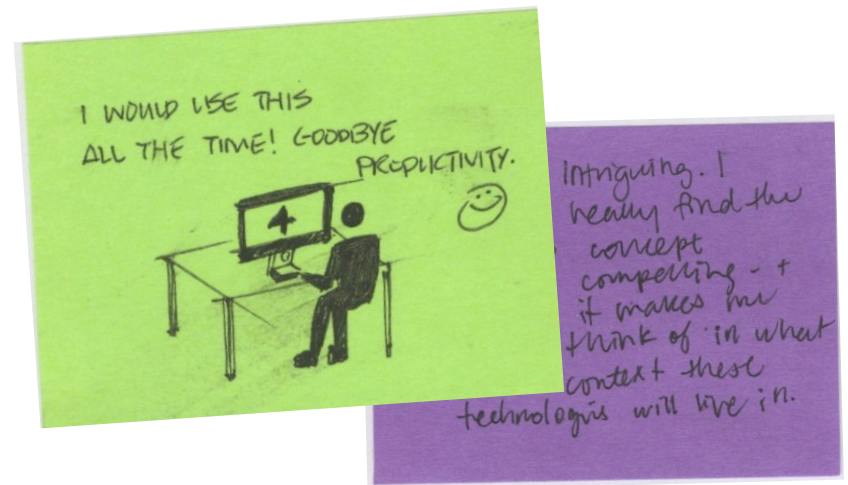 I WOULD USE THIS
ALL THE TIME! GOODBYE
PRODUCTIVITY.
4
Intriguing. I
really find the
concept
compelling - +
it makes me
think of in what
context these
technologies will live in.